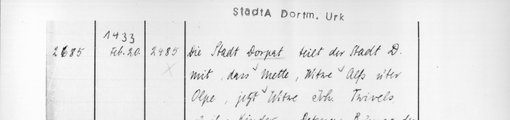 StadtA Dortm. Urk
1433
2685 Feb. 20. 2485 Die Stadt Dorpat teilt der Stadt D.
mit, dass Mette, Witwe Alfs über
Olpe, jetzt Witwe Joh. Twivels